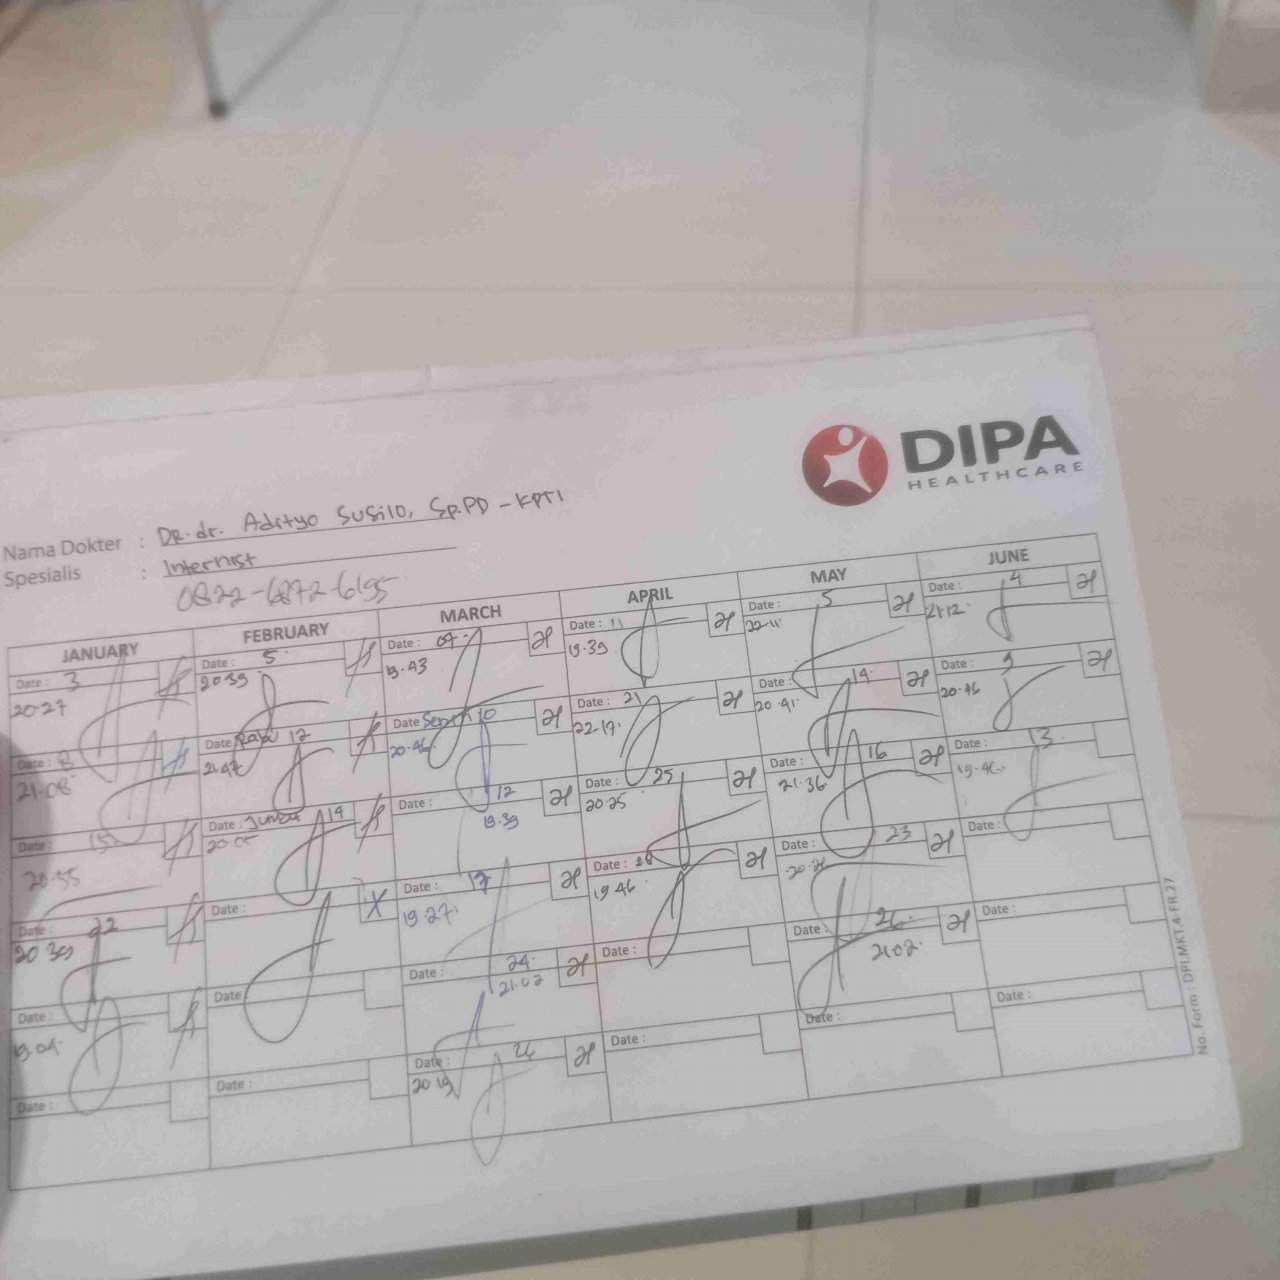 DIPA
HEALTHCARE
Nama Dokter : DR. dr. Adityo Susilo, Sp.PD - KPTI
Spesialis : Internist
0822-6872-6195
JANUARY FEBRUARY MARCH APRIL MAY JUNE
Date : 3
20.27
Date : 8
21.08
Date : 15
20.55
Date : 22
20.39
Date :
19.04
Date :
Date : 5
20.39
Date : Rabu 12
21.47
Date : Jumat 19
Date :
Date :
Date :
Date : 07
19.43
Date : Senin 10
20.46
Date : 12
19.39
Date : 17
19.27
Date : 24
21.02
Date : 26
20.19
Date : 11
19.39
Date : 21
22.17
Date : 25
20.25
Date : 28
19.46
Date :
Date :
Date : 5
22.11
Date : 14
20.41
Date : 16
21.36
Date : 23
Date : 26
21.02
Date :
Date : 4
21.12
Date : 9
20.46
Date : 13
19.46
Date :
Date :
Date :
No. Form : DPI.MKT.4-FR.27